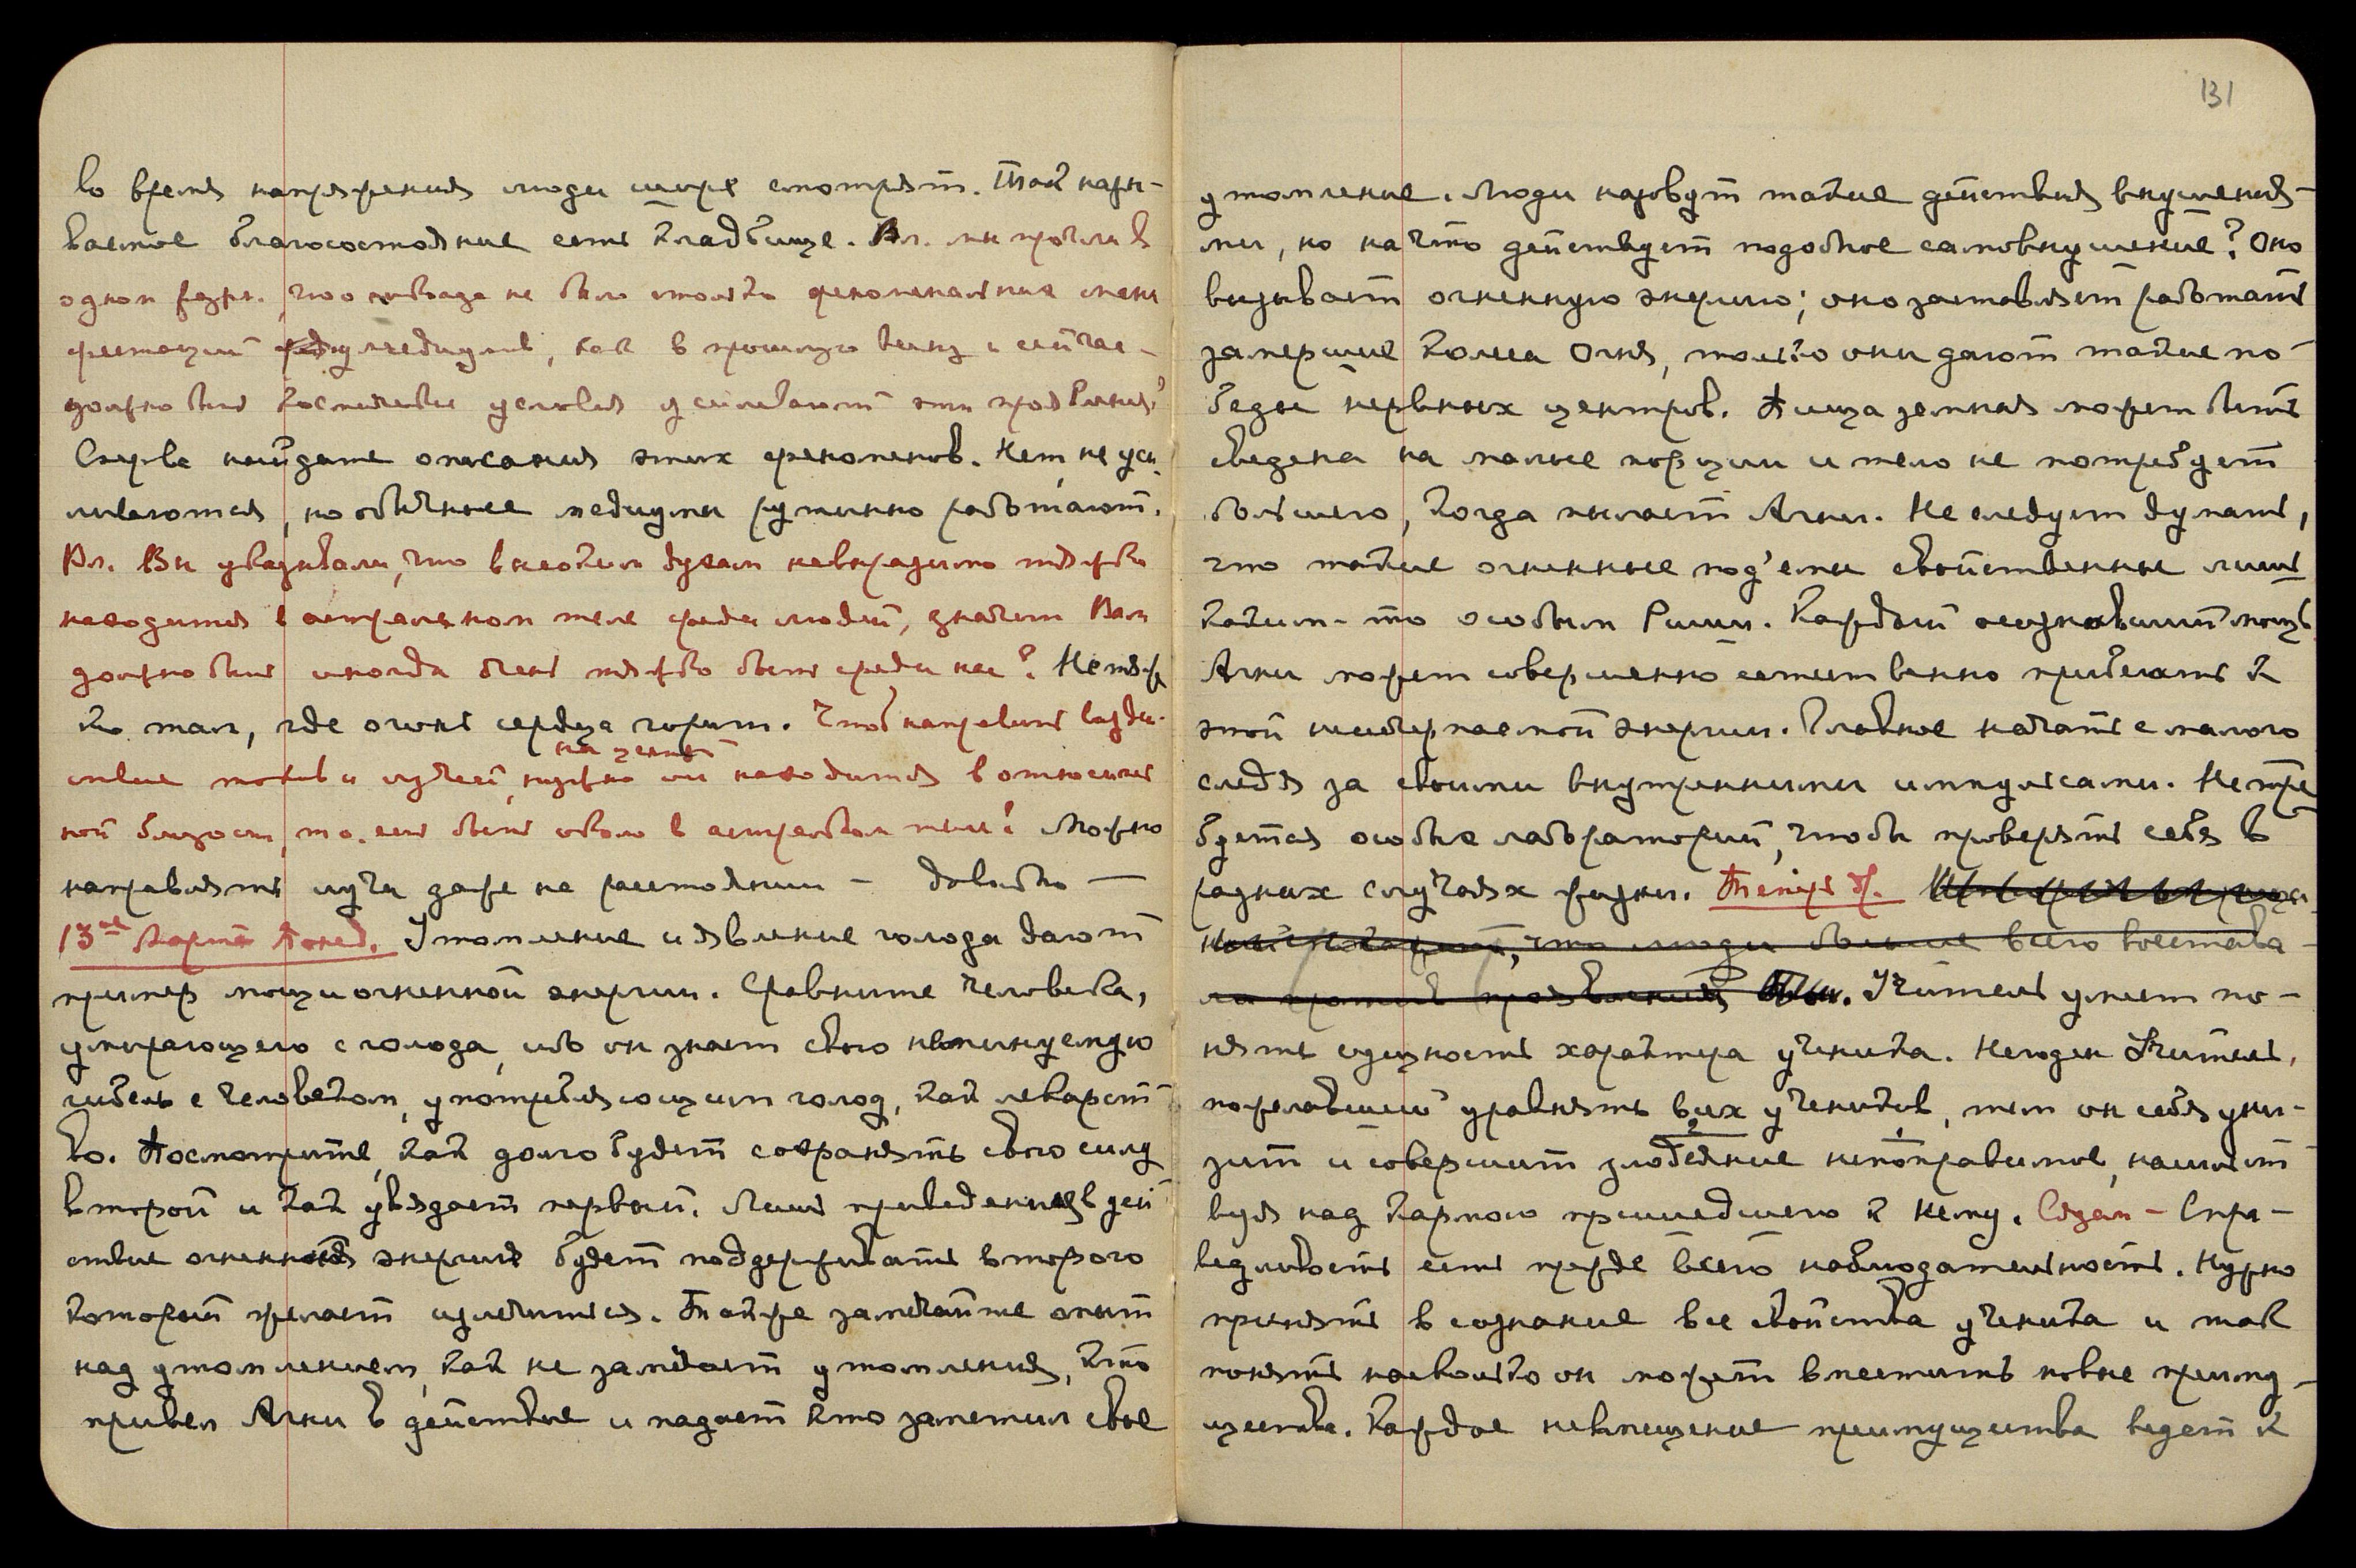 во время напряжения люди шире смотрят. Так назы-
ваемое благосостояние есть кладбище. Вл. мы прочли в
одном журн. что никогда не было столько феноменальных мани
фестаций среди медиумов, как в прошлую войну и сейчас –
должно быть космические условия усиливают эти проявления?
Сперва найдите описания этих феноменов. Нет, не уси
ливаются, но обычные медиумы рутинно работают.
Вл. Вы указывали, что высоким духам невыразимо тяжко
находиться в астральном теле среди людей, значит Вам
должно быть иногда очень тяжко быть среди нас? Не тяж
ко там, где огонь сердца горит. Чтоб направить воздей-
ствие токов и лучей, нужно ли находиться в относитель
на земной
ной близости, то-есть быть около в астральном теле? Можно
направлять лучи даже на расстоянии – довольно —
13ое Марта Понед. Утомление и явление голода дают
пример мощи огненной энергии. Сравните человека,
умирающего с голода, ибо он знает свою неминуемую
гибель с человеком, употребляющим голод, как лекарст
во. Посмотрите, как долго будет сохранять свою силу
второй и как увядает первый. Лишь приведенная в дей
ствие огненная энергия будет поддерживать второго
который желает излечиться. Также замечайте опыт
над утомлением, как не замечает утомления, кто
привел Агни в действие и падает кто заметил свое
131
утомление. Люди назовут такие действия внушения-
ми, но на что действует подобное самовнушение? Оно
вызывает огненную энергию; оно заставляет работать
замершие колеса Огня, только они дают такие по-
беды нервных центров. Пища земная может быть
сведена на малые порции и тело не потребует
большего, когда пылает Агни. Не следует думать,
что такие огненные под'емы свойственные лишь
каким-то особым Риши. Каждый осознавший мощь
Агни может совершенно естественно прибегать к
этой неисчерпаемой энергии. Главное начать с малого
следя за своими внутренними импульсами. Не тре
буется особых лабораторий, чтобы проверять себя в
разных случаях жизни. Теперь др.
что люди больше всего восстава-
ли против проявления Учитель умеет по-
нять сущность характера ученика. Негоден Учитель,
пожелавший уравнять всех учеников, тем он себя уни-
зит и совершит злодеяние непоправимое, насильст
вуя над кармою пришедшего к нему. Сказал – Спра-
ведливость есть прежде всего наблюдательность. Нужно
принять в сознание все свойства ученика и так
понять насколько он может вместить новые преиму-
щества. Каждое невмещение преимущества ведет к